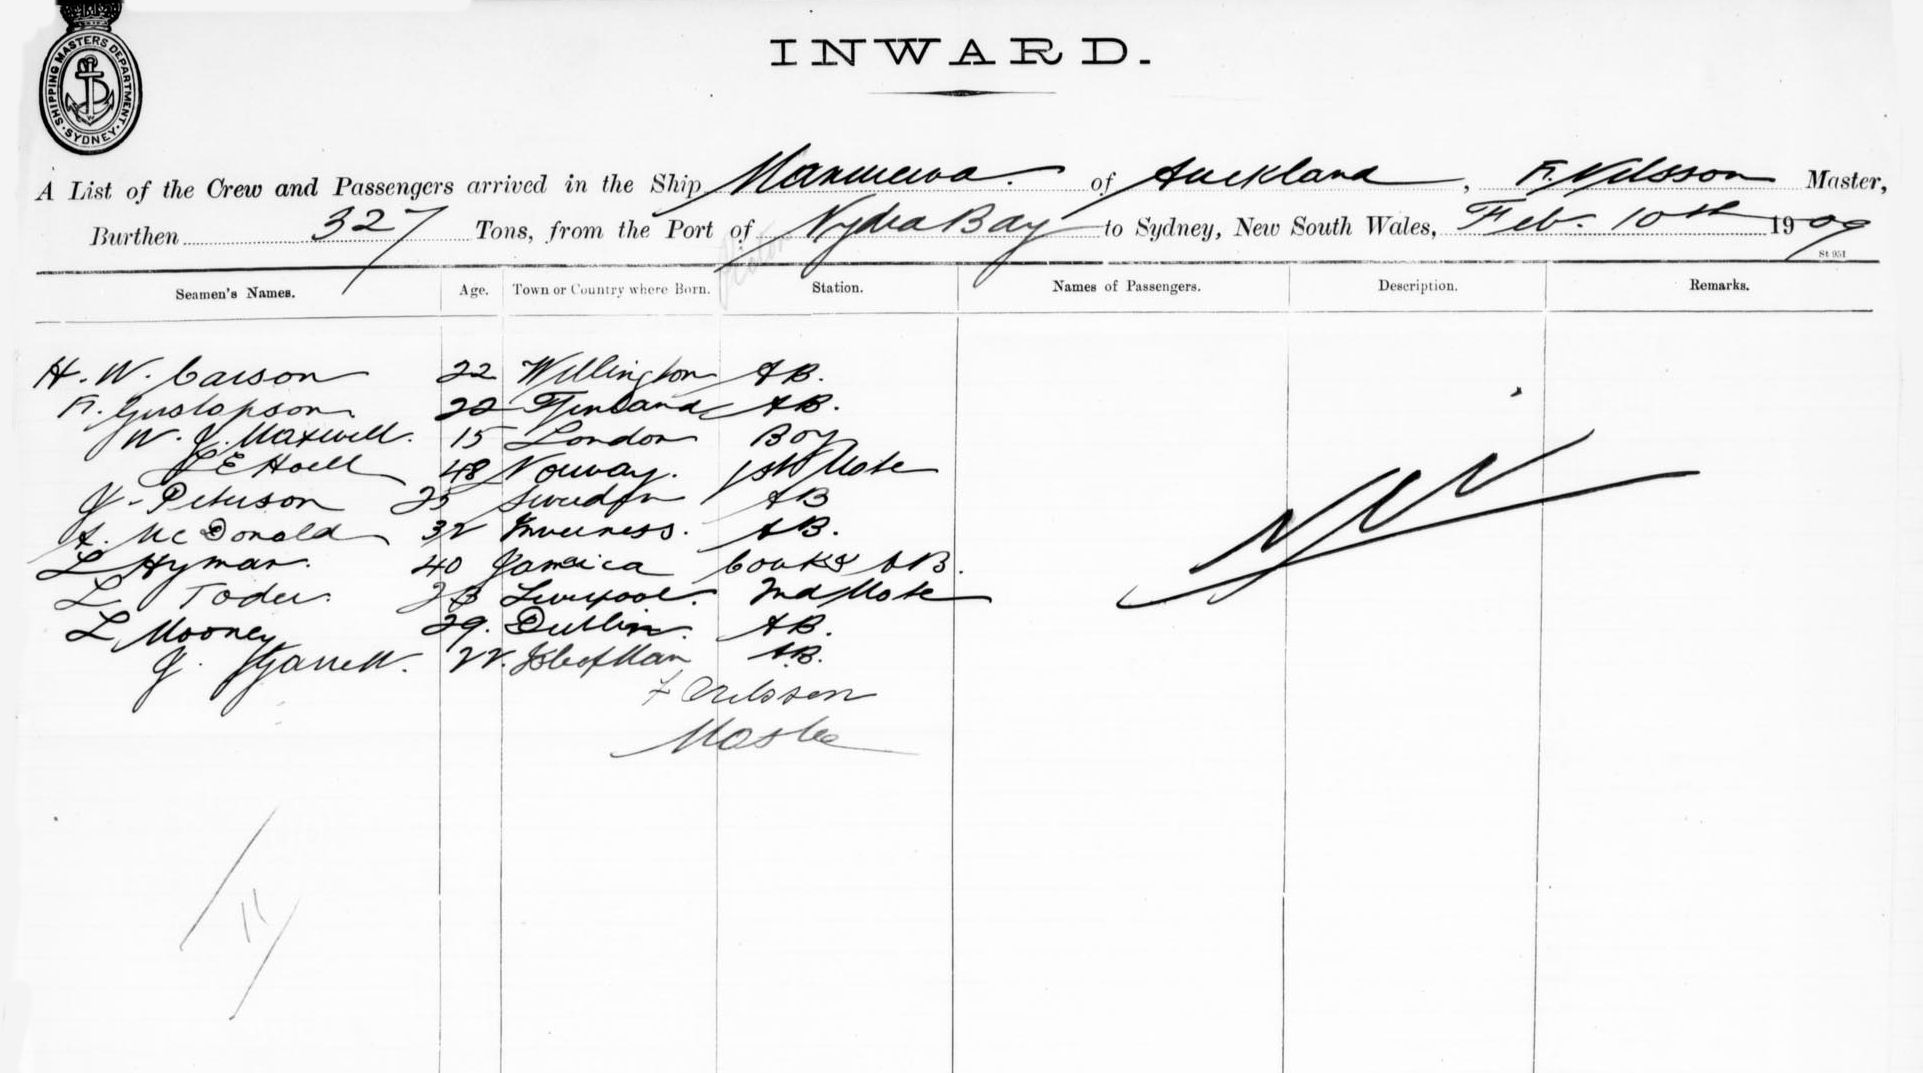 SHIPPING MASTERS DEPARTMENT
SYDNEY
INWARD.
A List of the Crew and Passengers arrived in the Ship Manurewa. of Auckland, F. Nilsson Master,
Burthen 327 Tons, from the Port of Nydia Bay to Sydney, New South Wales, Feb. 10th 1909
St 951
Seamen's Names. Age. Town or Country where Born. Station. Names of Passengers. Description. Remarks.
H. W. Carson 22 Wellington AB.
F. Gustafson 22 Finland AB.
W. J. Maxwell. 15 London Boy
Hoell 48 Norway. 1st Mate
J. Peterson 25 Sweden AB
A. McDonald 32 Inverness. AB.
L Hyman. 40 Jamaica Cook & AB.
L Toder. Liverpool. 2nd Mate
L Mooney 29. Dublin. AB.
J. Garrett. 22. Isle of Man AB.
F Nilsson
Master
11